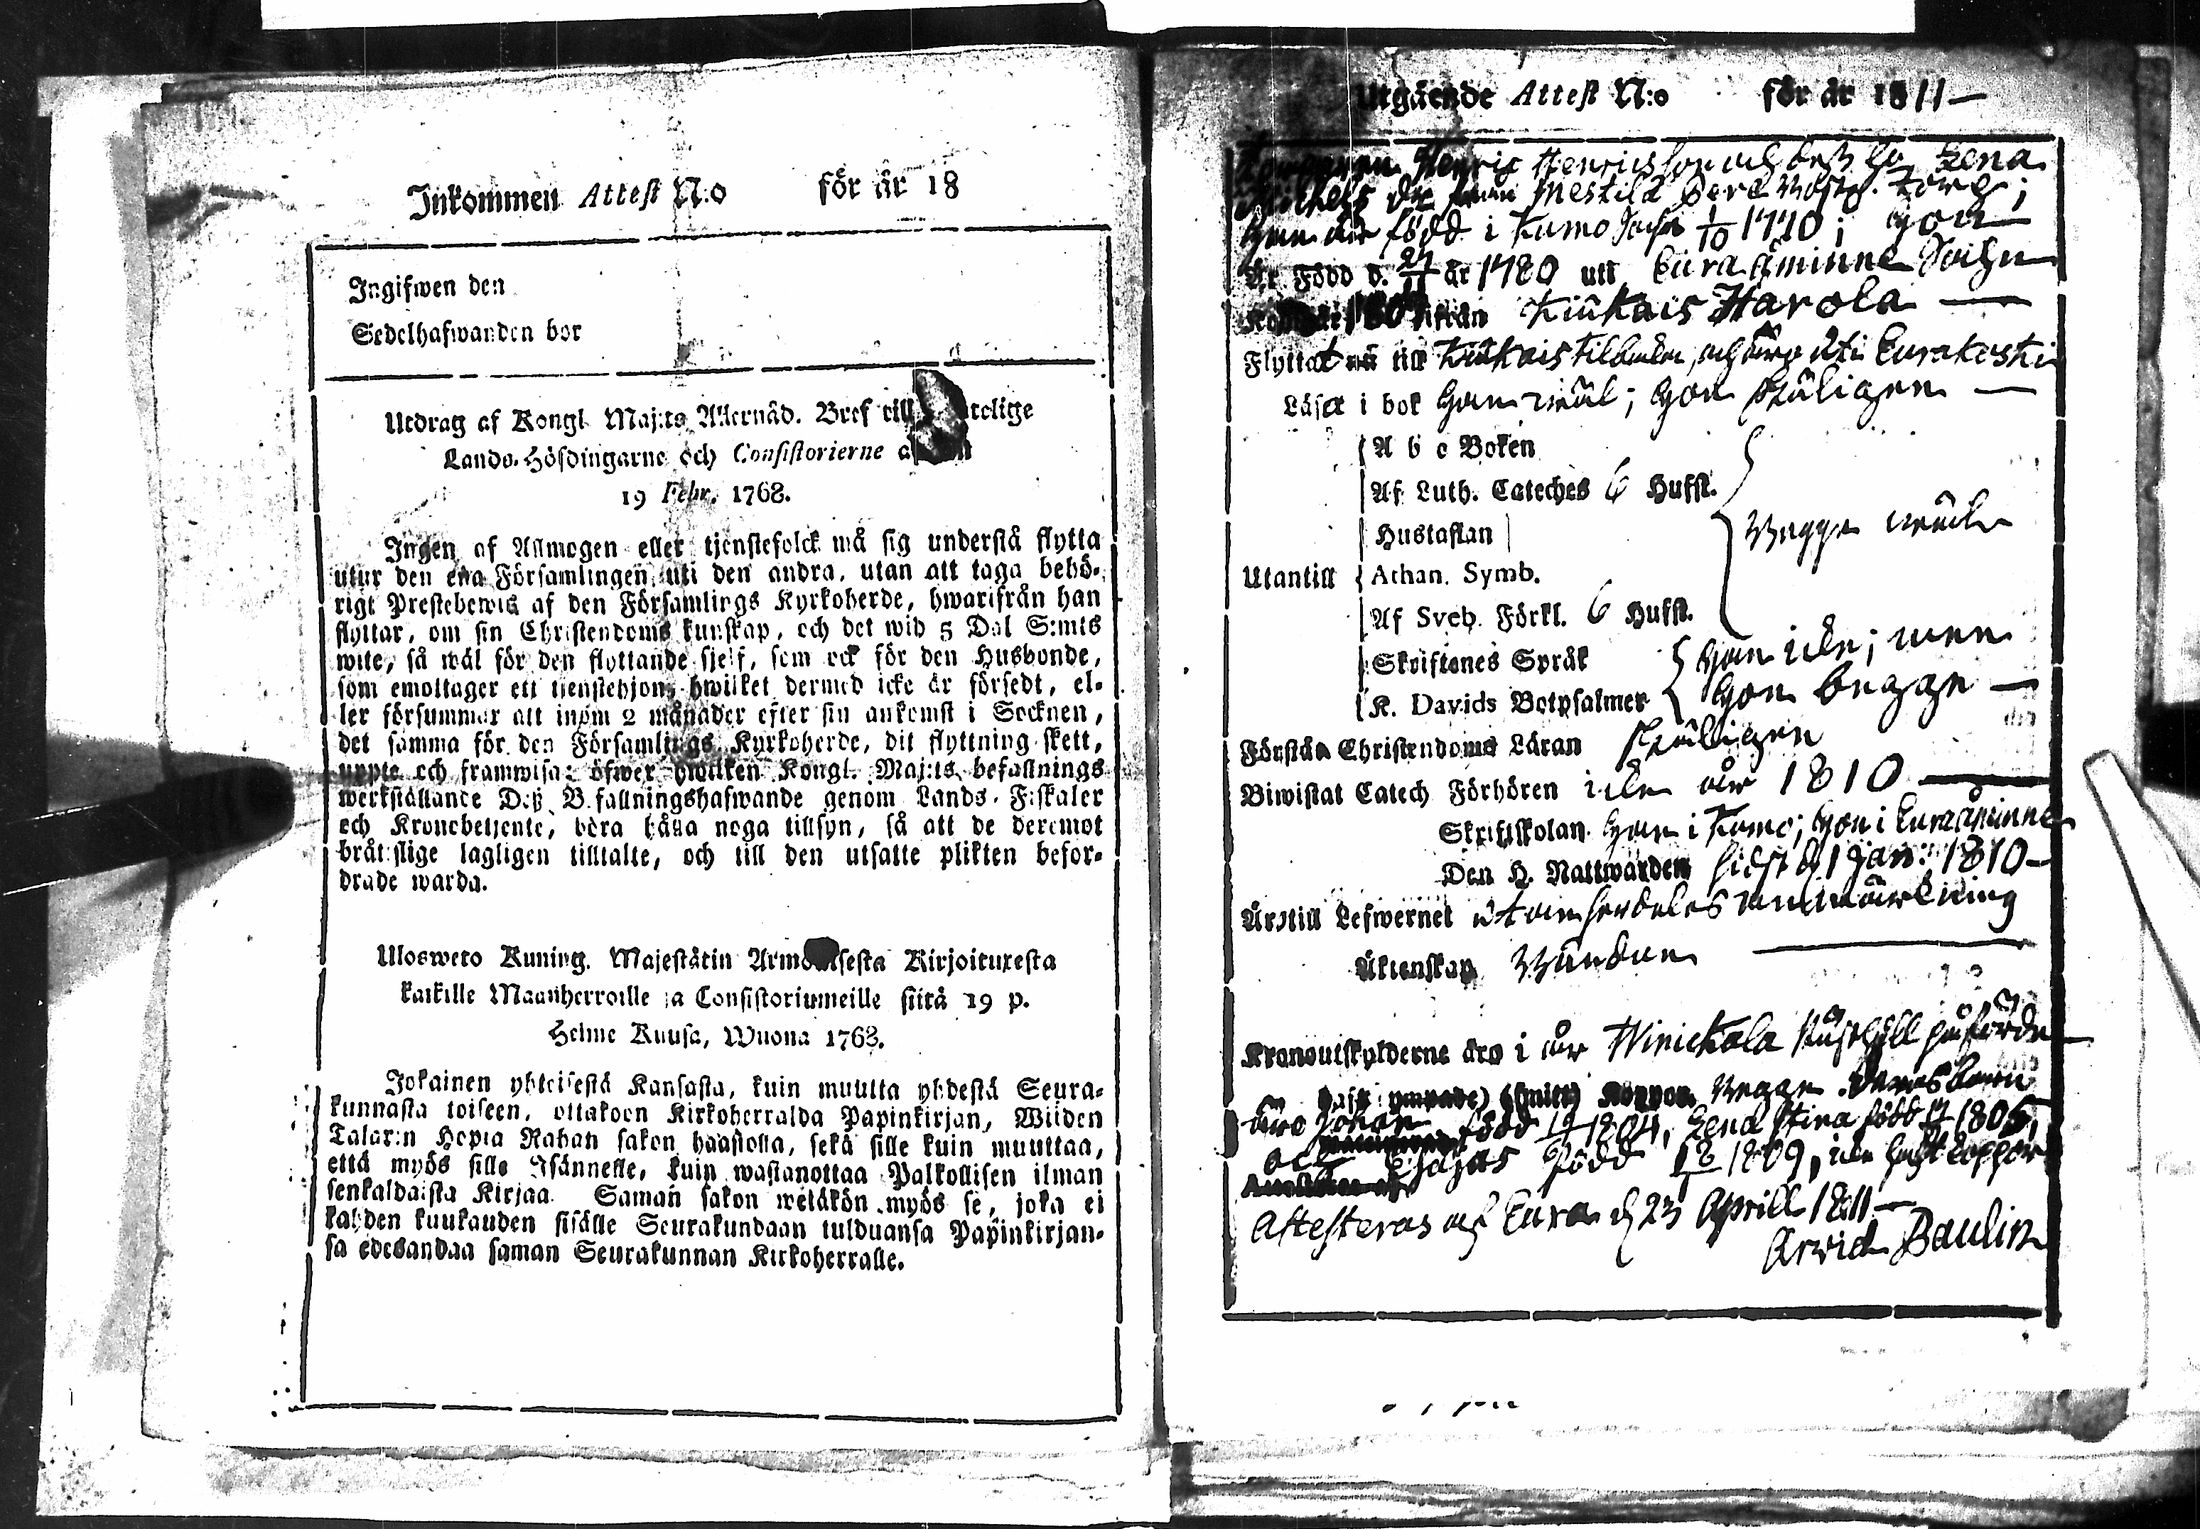 Inkommen Attest N:o för år 18
Ingifwen den
Sedelhafwanden bor
Utdrag af Kongl. Maj:ts Allernåd. Bref till
Lands-Höfdingarne och Consistorierne
19 Febr. 1768.
Ingen af Allmogen eller tjenstefolck må sig understå flytta
utur den ena Församlingen uti den andra, utan att taga behö-
rigt Prestebewis af den Församlings Kyrkoherde, hwarifrån han
flyttar, om sin Christendoms kunskap, och det wid 5 Dal S:mts
wite, så wäl för den flyttande sjelf, som ock för den Husbonde,
som emottager ett tjenstehjon, hwilket dermed icke är försedt, el-
ler försummar att inom 2 månader efter sin ankomst i Socknen,
det samma för den Församlings Kyrkoherde, dit flyttning skett,
uppte och framwisa: öfwer hwilken Kongl. Maj:ts befallnings
werkställande Deß Befallningshafwande genom Lands-Fiskaler
och Kronobetjente, böra hålla noga tillsyn, så att de deremot
bråtslige lagligen tilltalte, och till den utsatte plikten befor-
drade warda.
Ulosweto Kuning. Majestätin Armollisesta Kirjoituxesta
kaikille Maanherroille ja Consistoriumeille siitä 19 p.
Helme Kuusa, Wuona 1768.
Jokainen yhteisestä Kansasta, kuin muutta yhdestä Seura-
kunnasta toiseen, ottakoon Kirkoherralda Papinkirjan, Wiiden
Talarin Hopia Rahan sakon haastolla, sekä sille kuin muuttaa,
että myös sille Isännelle, kuin wastanottaa Palkollisen ilman
senkaldaista Kirjaa. Saman sakon wetäkön myös se, joka ei
kahden kuukauden sisälle Seurakundaan tulduansa Papinkirjan-
sa edesandaa saman Seurakunnan Kirkoherralle.
Utgående Attest N:o för år 1811 —
Henric Henricsson och deß hu Lena
Michels dr från Mestilä
Han är född i Kumo Sochn 1/10 1770; hon
Är Född d. 27/11 år 1780 uti Euraåminne Sochn
ifrån Kiukais Harola —
Flyttat nu till Kiukais tillbaka, och äro uti Eurakoski
Läsa i bok han wäl; hon skäligen —
A b c Boken
Af Luth. Cateches 6 Hufst.
Hustaflan
Begge wäl
Utantill Athan. Symb.
Af Sveb. Förkl. 6 Hufst.
Skriftenes Språk han icke; men
K. Davids Botpsalmer hon begge —
Förstå Christendoms Läran skäligen
Biwistat Catech Förhören icke år 1810 —
Skriftskolan han i Kumo; hon i Euraåminne
Den H. Nattwarden sidst d 1 Jan: 1810 —
Äro till Lefwernet utan serdeles anmärkning
Äktenskap Bundna —
Kronoutskylderne äro i år Winickala Rusthåll påförde —
Begge. Deras barn
äro Johan född 1804, Lena Stina född 1805,
och Esajas född 18/1 1809, icke haft koppor
Attesteras af Eura d 23 Aprill 1811 —
Arvid Paulin